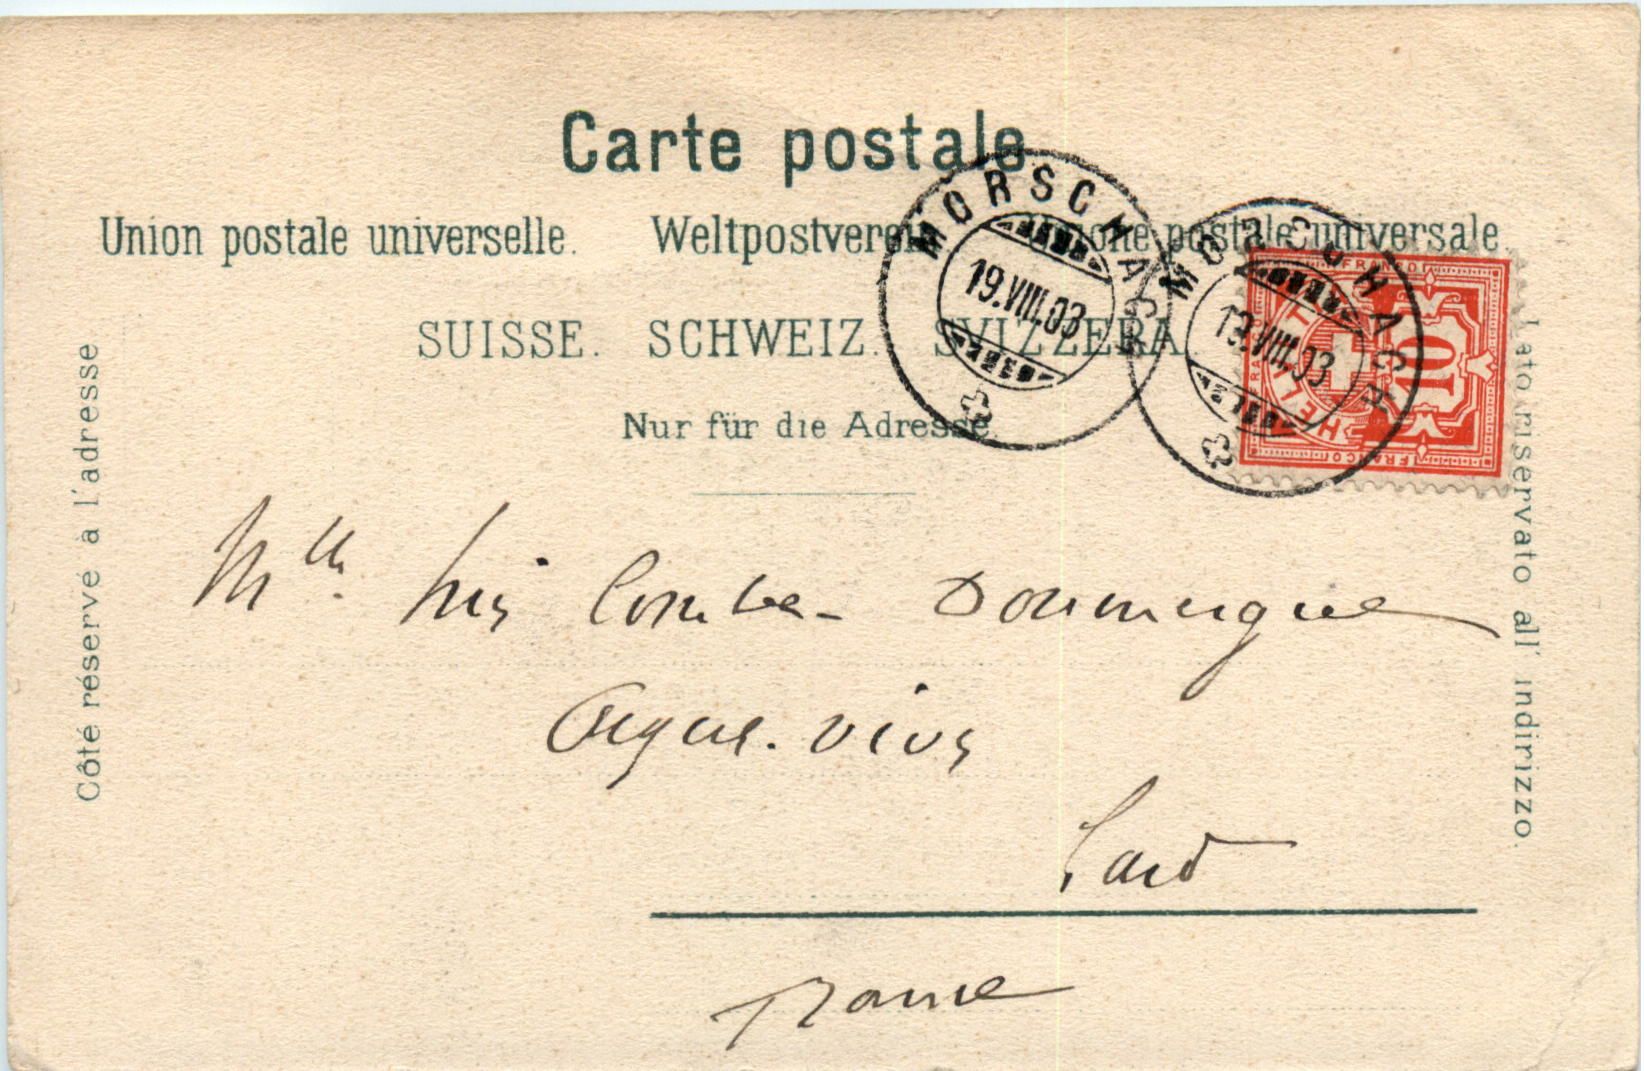 Carte postale
Union postale universelle. Weltpostverein. Unione postale universale.
SUISSE. SCHWEIZ. SVIZZERA
Nur für die Adresse.
Côté réservé à l'adresse
Lato riservato all' indirizzo.
MORSCHACH
19.VIII.03
MORSCHACH
19.VIII.03
FRANCO
HELVETIA
10
FRANCO
Mlle Combe-Doumergue
Aigues-vives
Gard
France